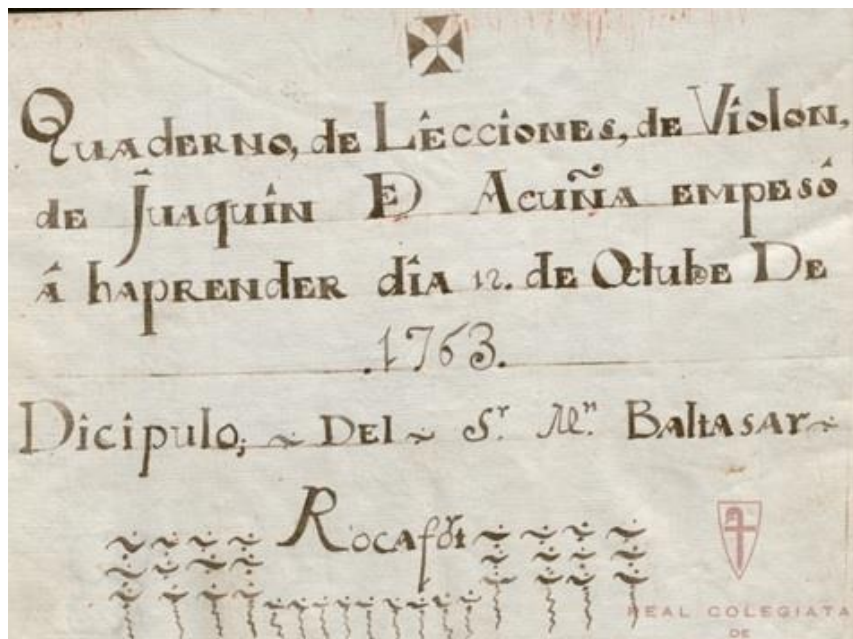 Quaderno, de Lêcciones, de Vîolon,
de Juaquîn D Acuña empesô
â haprender dîa 12. de Octube De
.1763.
Dicîpulo; ~ Del ~ S.r M.n Baltasar ~
Rocafort
REAL COLEGIATA
DE